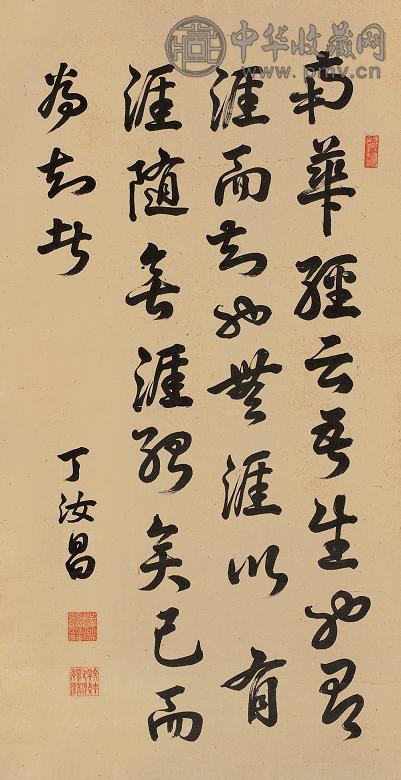 中华收藏网
www.pmv.cn
南華經云吾生也有
涯而知也無涯以有
涯随無涯殆矣已而
為知者
丁汝昌